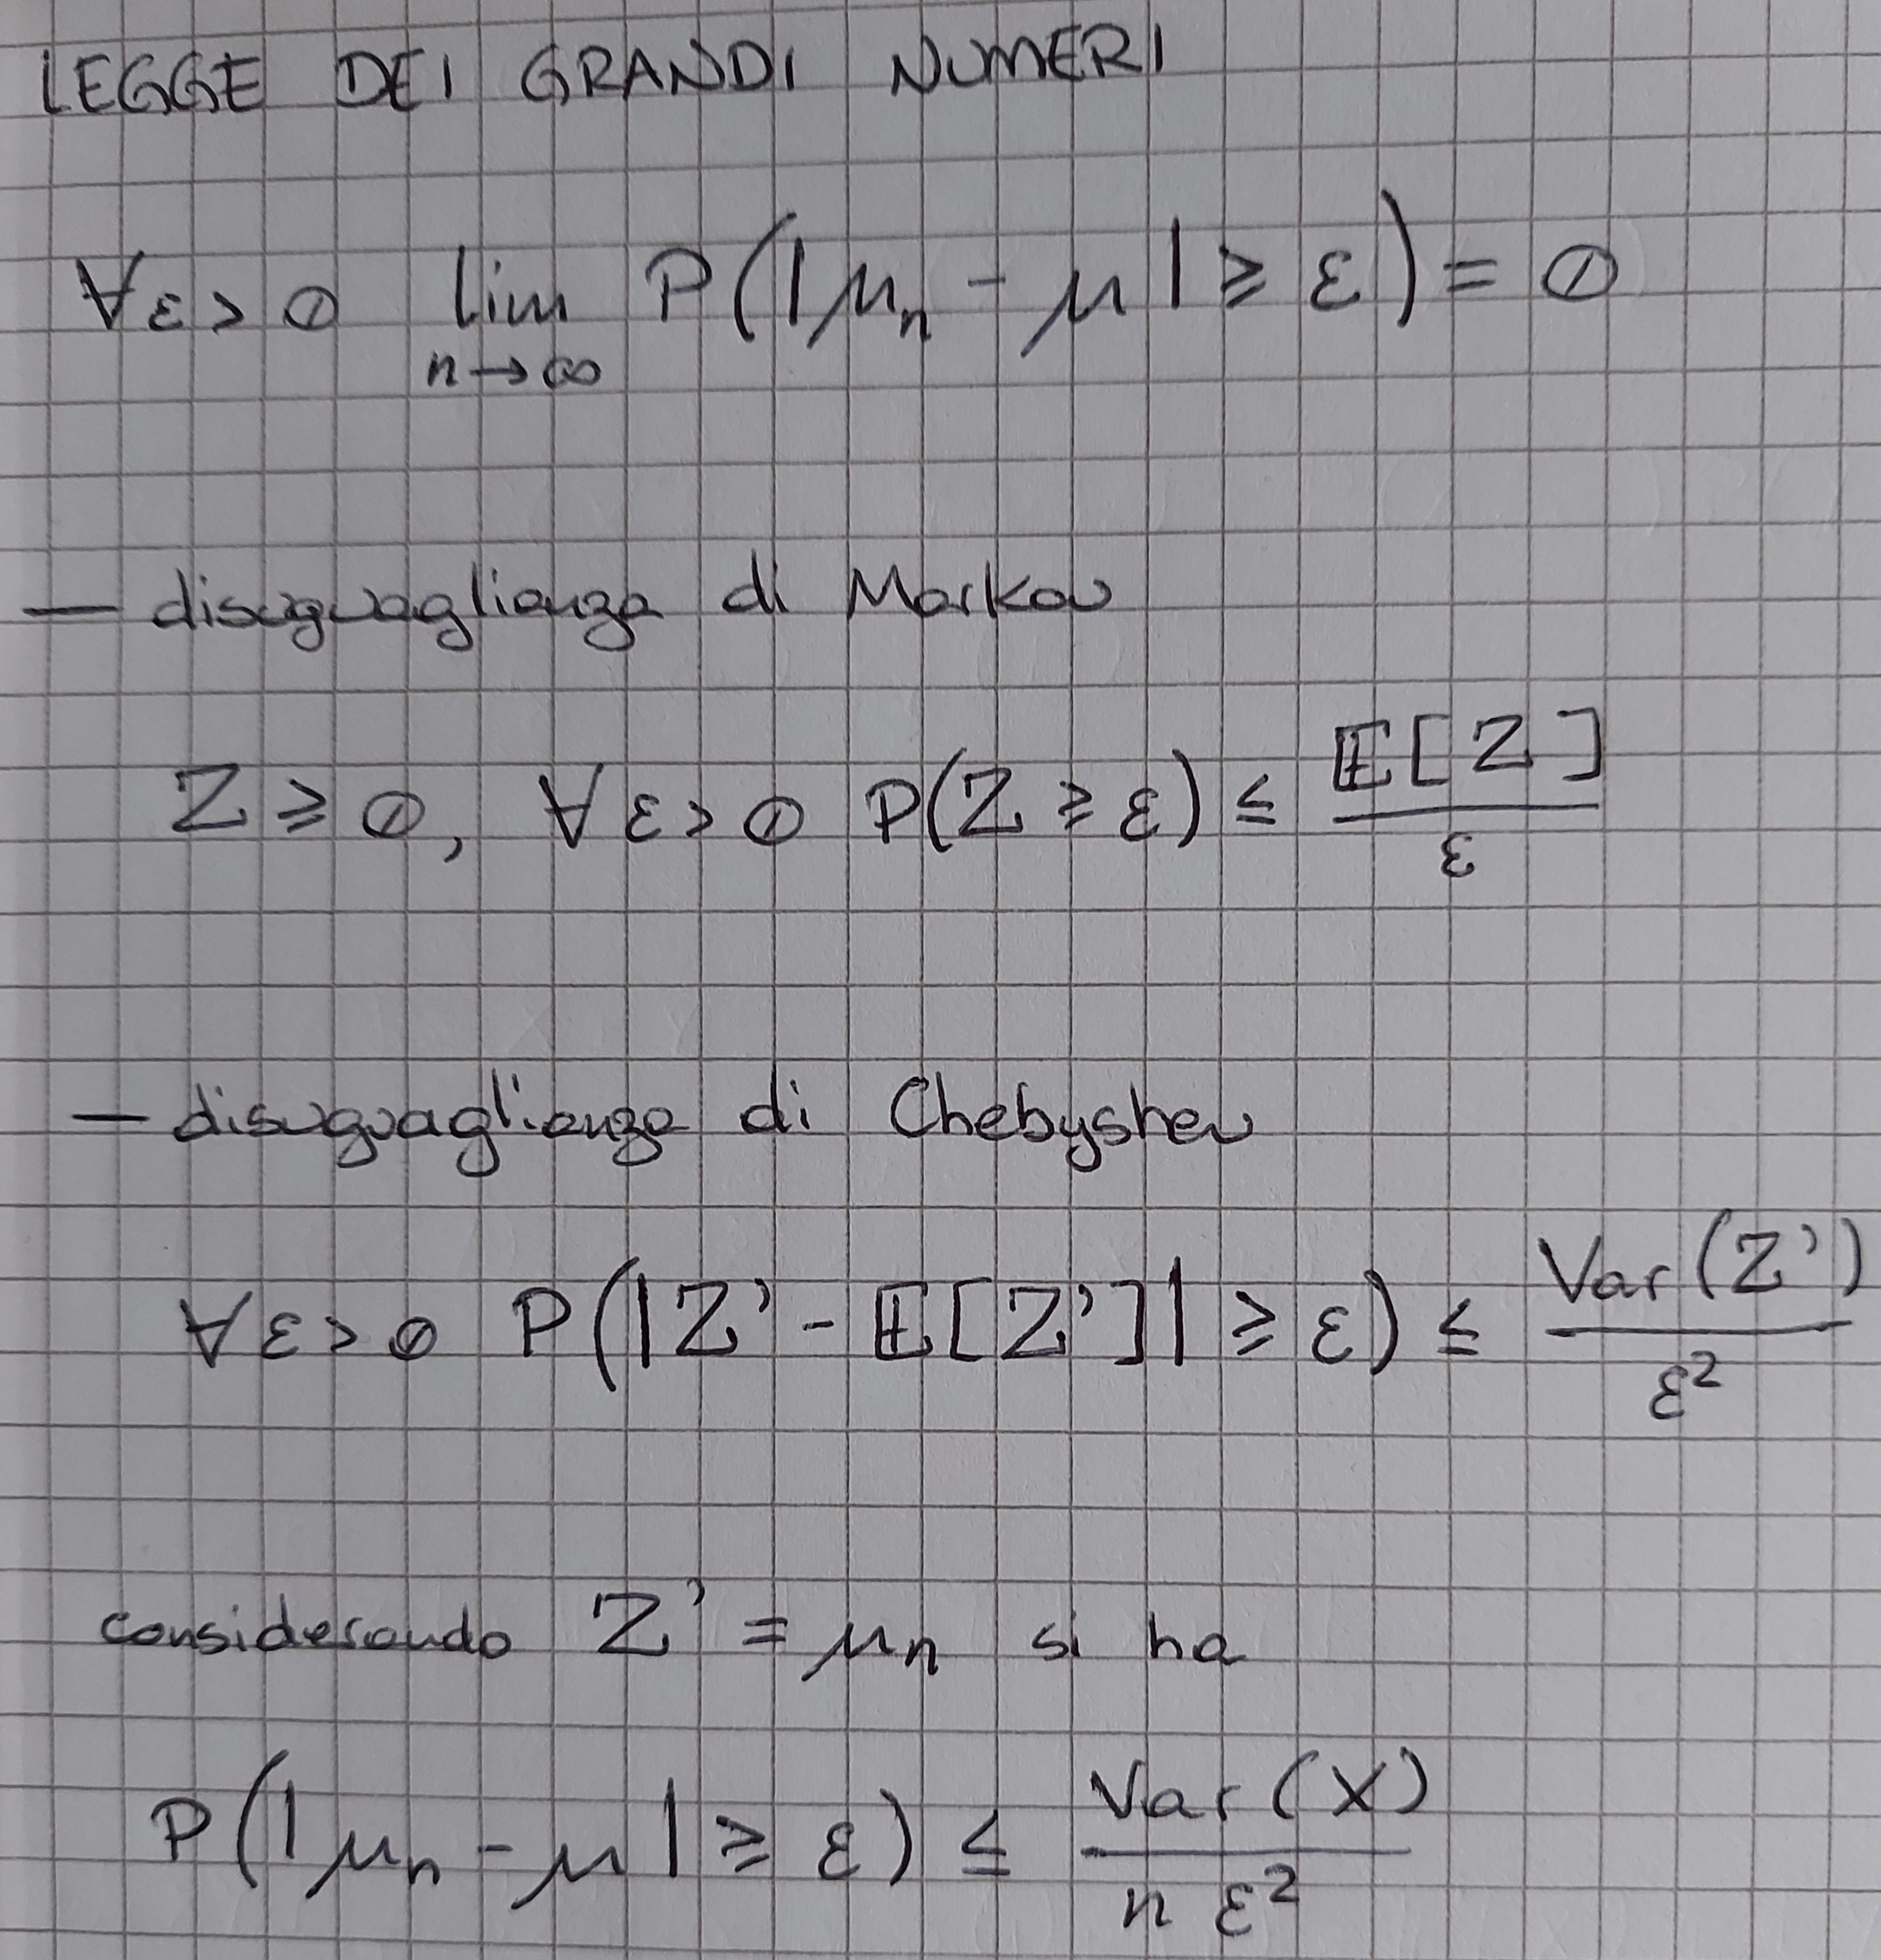 LEGGE DEI GRANDI NUMERI
∀ε > 0 lim P(|μₙ - μ| ≥ ε) = 0
n→∞
— disuguaglianza di Markov
Z ≥ 0, ∀ε > 0 P(Z ≥ ε) ≤ 𝔼[Z] / ε
— disuguaglianza di Chebyshev
∀ε > 0 P(|Z' - 𝔼[Z']| ≥ ε) ≤ Var(Z') / ε²
considerando Z' = μₙ si ha
P(|μₙ - μ| ≥ ε) ≤ Var(X) / n ε²